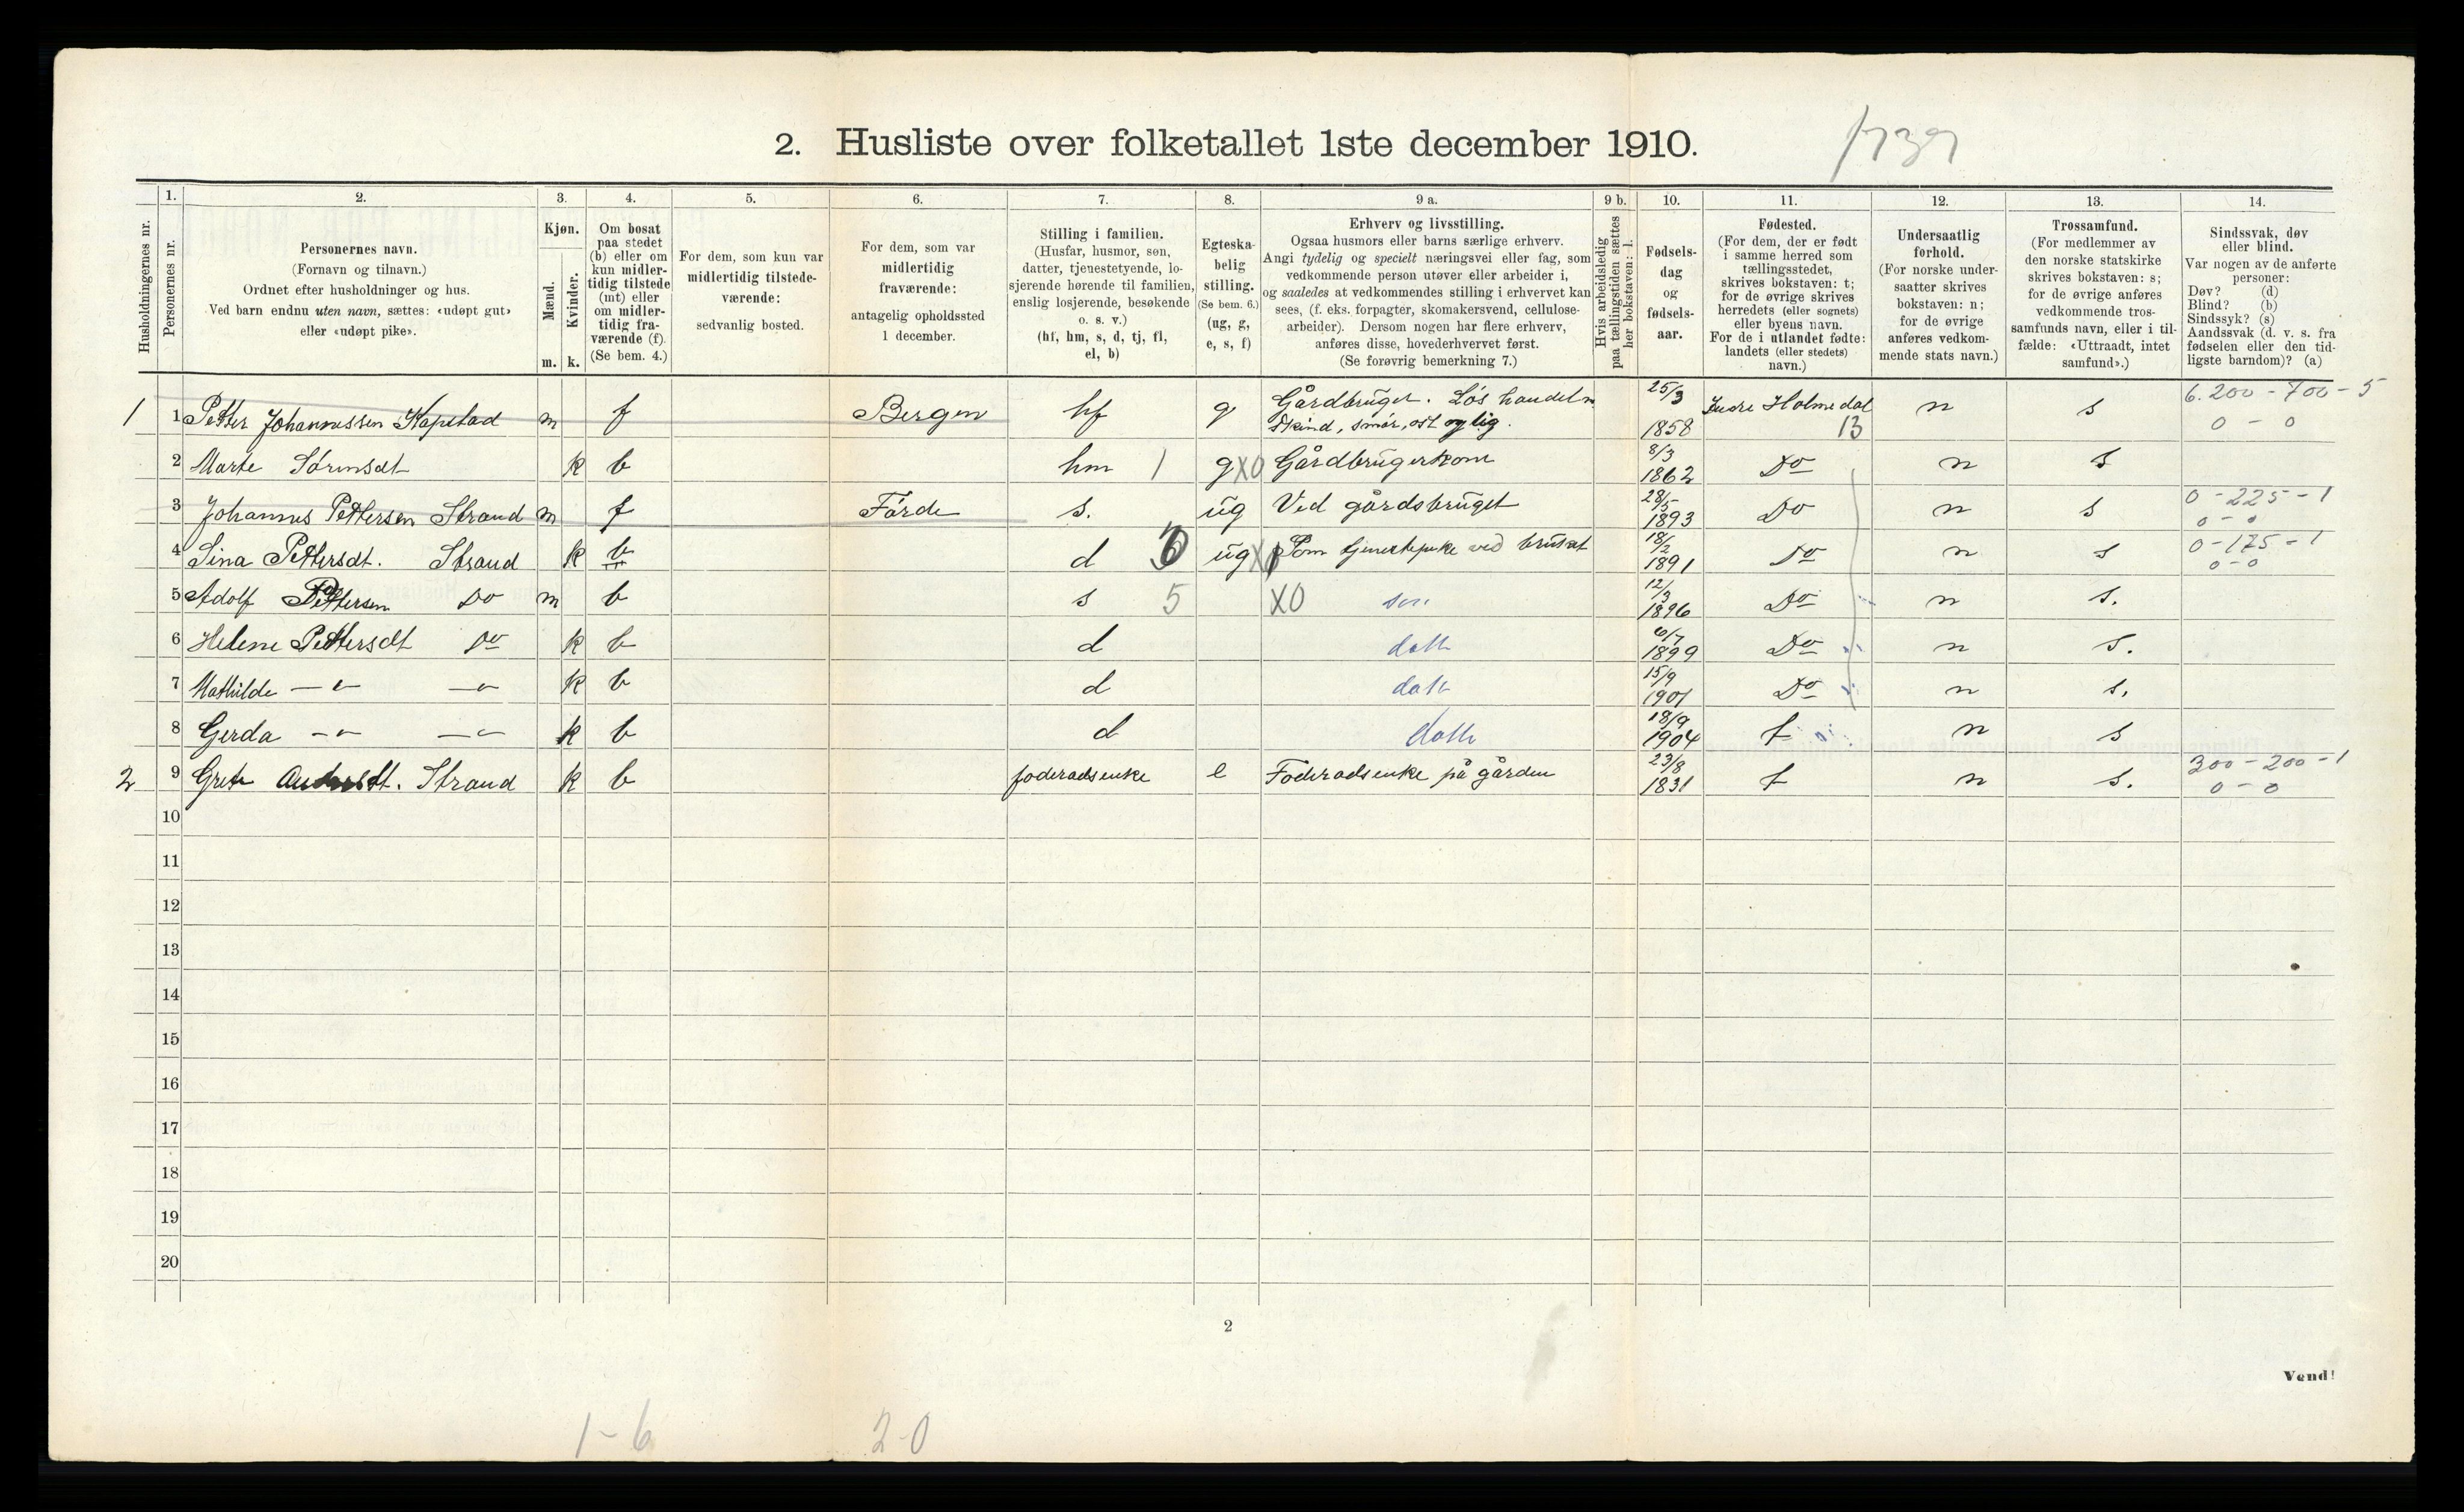 2. Husliste over folketallet 1ste december 1910.
1739
Husholdningernes nr.
1.
Personernes nr.
2.
Personernes navn.
(Fornavn og tilnavn.)
Ordnet efter husholdninger og hus.
Ved barn endnu uten navn, sættes: «udøpt gut»
eller «udøpt pike».
3.
Kjøn.
Mænd.
Kvinder.
m. k.
4.
Om bosat
paa stedet
(b) eller om
kun midler-
tidig tilstede
(mt) eller
om midler-
tidig fra-
værende (f).
(Se bem. 4.)
5.
For dem, som kun var
midlertidig tilstede-
værende:
sedvanlig bosted.
6.
For dem, som var
midlertidig
fraværende:
antagelig opholdssted
1 december.
7.
Stilling i familien.
(Husfar, husmor, søn,
datter, tjenestetyende, lo-
sjerende hørende til familien,
enslig losjerende, besøkende
o. s. v.)
(hf, hm, s, d, tj, fl,
el, b)
8.
Egteska-
belig
stilling.
(Se bem. 6.)
(ug, g,
e, s, f)
9 a.
Erhverv og livsstilling.
Ogsaa husmors eller barns særlige erhverv.
Angi tydelig og specielt næringsvei eller fag, som
vedkommende person utøver eller arbeider i,
og saaledes at vedkommendes stilling i erhvervet kan
sees, (f. eks. forpagter, skomakersvend, cellulose-
arbeider). Dersom nogen har flere erhverv,
anføres disse, hovederhvervet først.
(Se forøvrig bemerkning 7.)
9 b.
Hvis arbeidsledig
paa tællingstiden sættes
her bokstaven: l.
10.
Fødsels-
dag
og
fødsels-
aar.
11.
Fødested.
(For dem, der er født
i samme herred som
tællingsstedet,
skrives bokstaven: t;
for de øvrige skrives
herredets (eller sognets)
eller byens navn.
For de i utlandet fødte:
landets (eller stedets)
navn.)
12.
Undersaatlig
forhold.
(For norske under-
saatter skrives
bokstaven: n;
for de øvrige
anføres vedkom-
mende stats navn.)
13.
Trossamfund.
(For medlemmer av
den norske statskirke
skrives bokstaven: s;
for de øvrige anføres
vedkommende tros-
samfunds navn, eller i til-
fælde: «Uttraadt, intet
samfund».)
14.
Sindssvak, døv
eller blind.
Var nogen av de anførte
personer:
Døv? (d)
Blind? (b)
Sindssyk? (s)
Aandssvak (d. v. s. fra
fødselen eller den tid-
ligste barndom)? (a)
1 1 Petter Johannessen Kapstad m f Bergen hf g Gårdbruger. Løs handel m skind, smør, ost og lig. 25/3 1858 Indre Holmedal 13 n s 6.200 - 700 - 5
0 - 0
2 Marte Sørensdt k b hm 1 g X0 Gårdbrugerkone 8/3 1862 Do n s
3 Johannes Pettersen Strand m f Førde s. ug Ved gårdsbruget 28/5 1893 Do n s 0 - 225 - 1
0 - 0
4 Sina Pettersdt. Strand k b d ug Som tjenestepike ved bruket 18/2 1891 Do n s 0 - 175 - 1
0 - 0
5 Adolf Pettersen Do m b s 5 X0 søn 12/3 1896 Do n s.
6 Helene Pettersdt Do k b d datt 6/7 1899 Do n s.
7 Mathilde — " — — " k b d datt 15/9 1901 Do n s.
8 Gerda — " — — " k b d datt 18/9 1904 t n s
2 9 Grete Andersdt. Strand k b foderadsenke e Foderadsenke på gården 23/8 1831 t n s. 300 - 200 - 1
0 - 0
10
11
12
13
14
15
16
17
18
19
20
2
Vend!
1 - 6 2 - 0